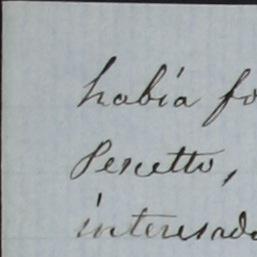 había fo
Pescetto,
interesado